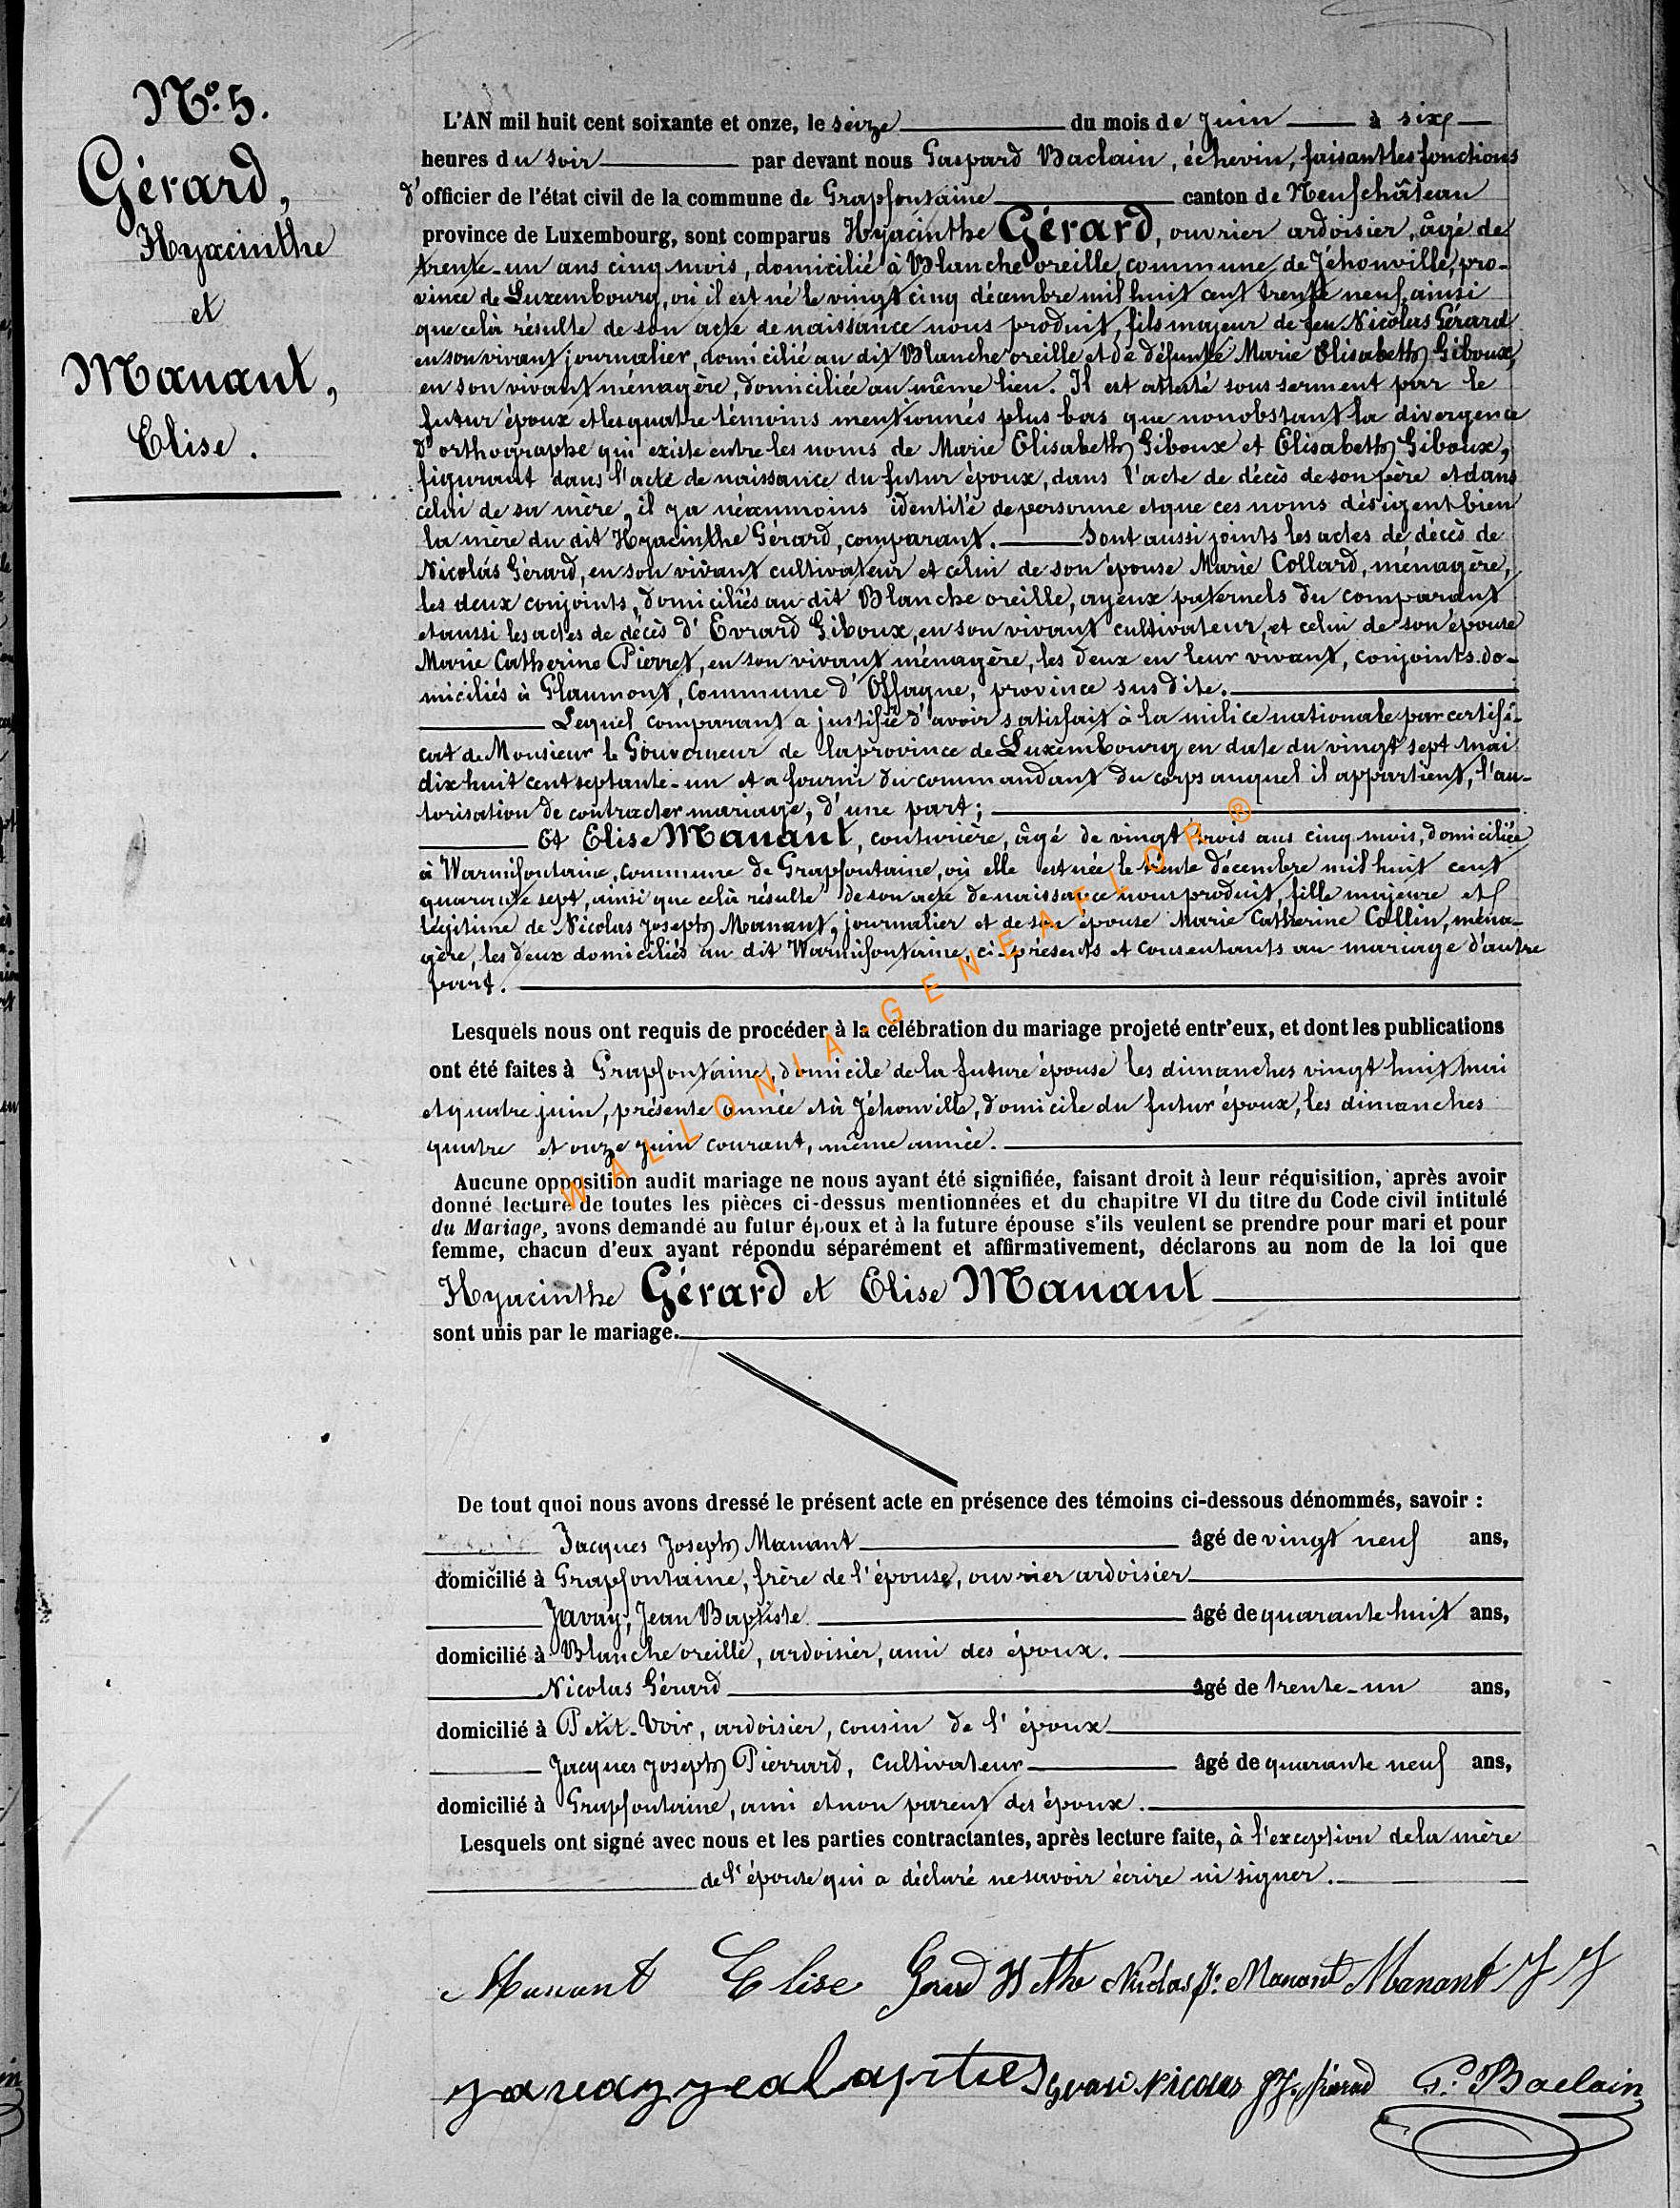 No. 5.
Gérard,
Hyacinthe
et
Manant,
Elise.
L'AN mil huit cent soixante et onze, le seize du mois de Juin à six
heures du soir par devant nous Gaspard Baclain, échevin, faisant les fonctions
d'officier de l'état civil de la commune de Grapfontaine canton de Neufchâteau
province de Luxembourg, sont comparus Hyacinthe Gérard, ouvrier ardoisier, âgé de
trente-un ans cinq mois, domicilié à Blanche oreille, commune de Jéhonville, pro-
vince de Luxembourg, où il est né le vingt cinq décembre mil huit cent trente neuf, ainsi
que celà résulte de son acte de naissance nous produit, fils majeur de feu Nicolas Gérard
en son vivant journalier, domicilié au dit Blanche oreille et de défunte Marie Elisabeth Giboux,
en son vivant ménagère, domiciliée au même lieu. Il est attesté sous serment par le
futur époux et les quatre témoins mentionnés plus bas que nonobstant la divergence
d'orthographe qui existe entre les noms de Marie Elisabeth Giboux et Elisabeth Giboux,
figurant dans l'acte de naissance du futur époux, dans l'acte de décès de son père et dans
celui de sa mère, il y a néanmoins identité de personne et que ces noms désigent bien
la mère du dit Hyacinthe Gérard, comparant. Sont aussi joints les actes de décès de
Nicolas Gérard, en son vivant cultivateur et celui de son épouse Marie Collard, ménagère,
les deux conjoints, domiciliés au dit Blanche oreille, ayeux paternels du comparant
et aussi les actes de décès d'Evrard Giboux, en son vivant cultivateur, et celui de son épouse
Marie Catherine Pierret, en son vivant ménagère, les deux en leur vivant, conjoints do-
miciliés à Glaumont, commune d'Offagne, province susdite.
Lequel comparant a justifié d'avoir satisfait à la milice nationale par certifi-
cat de Monsieur le Gouverneur de la province de Luxembourg en date du vingt sept mai
dix huit cent septante-un et a fourni du commandant du corps auquel il appartient, l'au-
torisation de contracter mariage, d'une part;
Et Elise Manant, couturière, âgé de vingt trois ans cinq mois, domiciliée
à Warmifontaine, commune de Grapfontaine, où elle est née le trente décembre mil huit cent
quarante sept, ainsi que celà résulte de son acte de naissance nous produit, fille majeure et
légitime de Nicolas Joseph Manant, journalier et de son épouse Marie Catherine Collin, ména-
gère, les deux domiciliés au dit Warmifontaine, ci-présents et consentants au mariage d'autre
part.
Lesquels nous ont requis de procéder à la célébration du mariage projeté entr'eux, et dont les publications
ont été faites à Grapfontaine, domicile de la future épouse les dimanches vingt huit mai
et quatre juin, présente année et à Jéhonville, domicile du futur époux, les dimanches
quatre et onze juin courant, même année.
Aucune opposition audit mariage ne nous ayant été signifiée, faisant droit à leur réquisition, après avoir
donné lecture de toutes les pièces ci-dessus mentionnées et du chapitre VI du titre du Code civil intitulé
du Mariage, avons demandé au futur époux et à la future épouse s'ils veulent se prendre pour mari et pour
femme, chacun d'eux ayant répondu séparément et affirmativement, déclarons au nom de la loi que
Hyacinthe Gérard et Elise Manant
sont unis par le mariage.
De tout quoi nous avons dressé le présent acte en présence des témoins ci-dessous dénommés, savoir :
Jacques Joseph Manant âgé de vingt neuf ans,
domicilié à Grapfontaine, frère de l'épouse, ouvrier ardoisier
Javay, Jean Baptiste âgé de quarante huit ans,
domicilié à Blanche oreille, ardoisier, ami des époux.
Nicolas Gérard âgé de trente-un ans,
domicilié à Petit-Voir, ardoisier, cousin de l'époux
Jacques Joseph Pierrard, cultivateur âgé de quarante neuf ans,
domicilié à Grapfontaine, ami et non parent des époux.
Lesquels ont signé avec nous et les parties contractantes, après lecture faite, à l'exception de la mère
de l'épouse qui a déclaré ne savoir écrire ni signer.
Manant Elise Nicolas J. Manant Manant J J
Nicolas G. Baclain
WALLONIA-GENEAFLOR ®